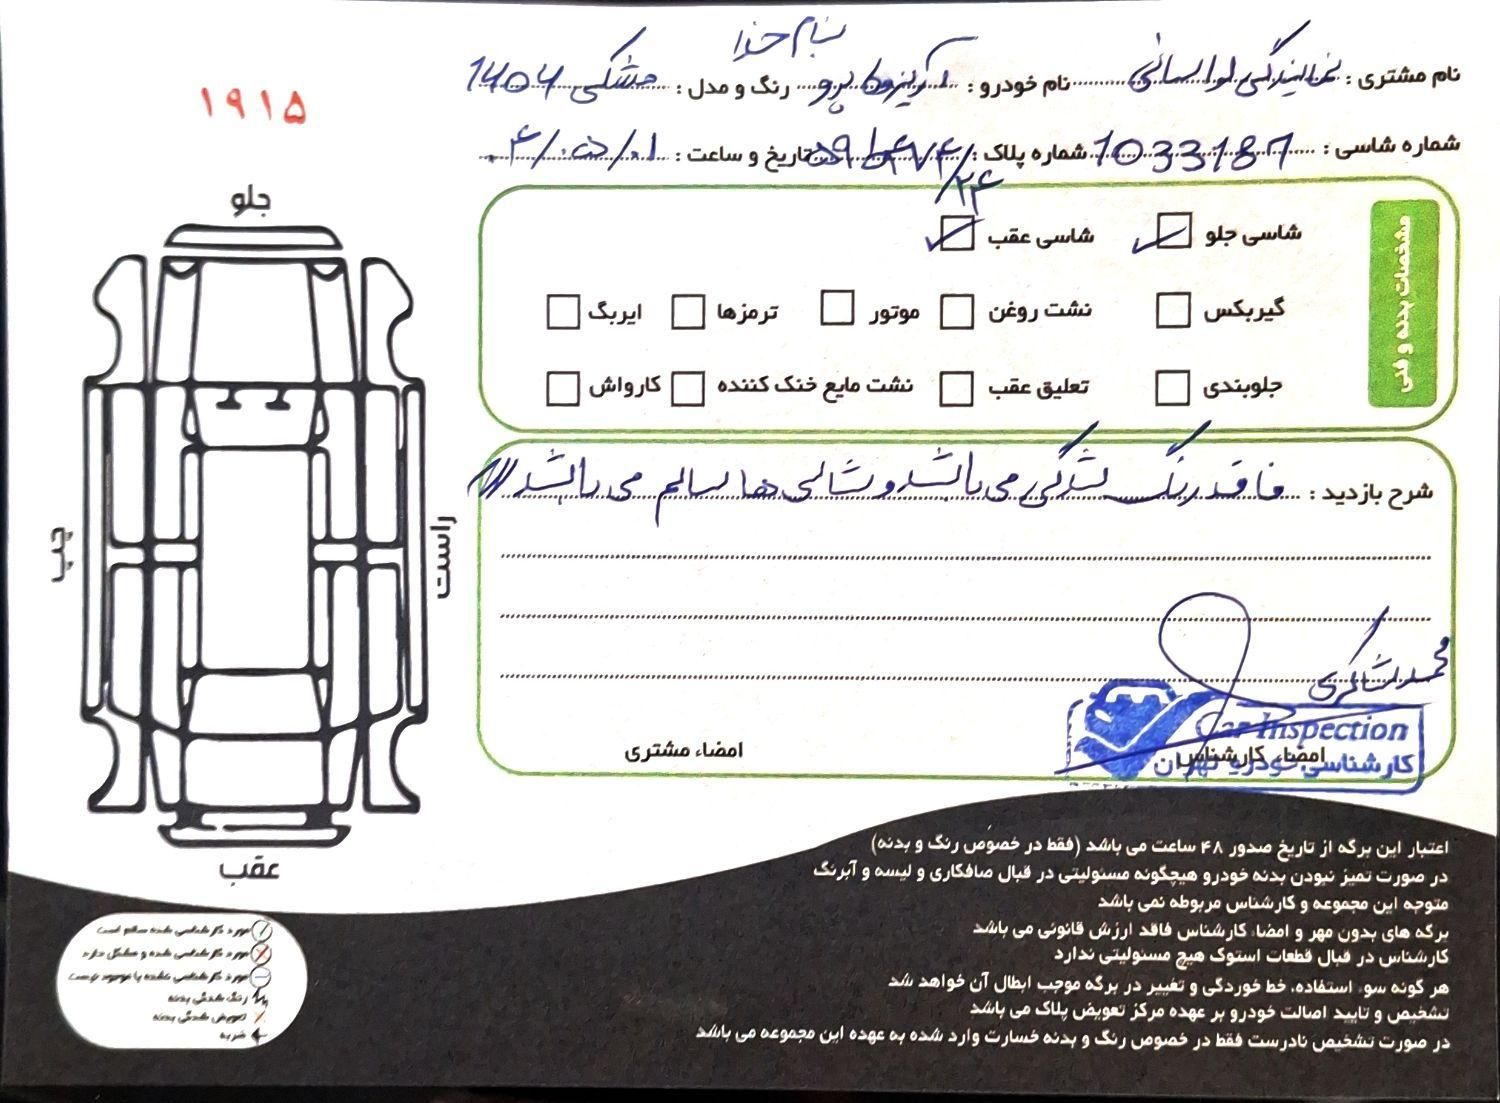 بنام خدا
نام مشتری : نمایندگی لواسانی نام خودرو : آریزو ۶ پرو رنگ و مدل : مشکی 1404
۱۹۱۵
شماره شاسی : 1033187 شماره پلاک : تاریخ و ساعت : ۰۴/۰۵/۰۱
مشخصات بدنه و فنی
شاسی جلو شاسی عقب
گیربکس نشت روغن موتور ترمزها ایربگ
جلوبندی تعلیق عقب نشت مایع خنک کننده کارواش
جلو
چپ
راست
عقب
شرح بازدید : فاقد رنگ شدگی می باشد و شاسی ها سالم می باشد
محمد شاکری
Car Inspection
کارشناسی خودرو تهران
امضاء کارشناس امضاء مشتری
اعتبار این برگه از تاریخ صدور ۴۸ ساعت می باشد (فقط در خصوص رنگ و بدنه)
در صورت تمیز نبودن بدنه خودرو هیچگونه مسئولیتی در قبال صافکاری و لیسه و آبرنگ
متوجه این مجموعه و کارشناس مربوطه نمی باشد
برگه های بدون مهر و امضاء کارشناس فاقد ارزش قانونی می باشد
کارشناس در قبال قطعات استوک هیچ مسئولیتی ندارد
هر گونه سوء استفاده، خط خوردگی و تغییر در برگه موجب ابطال آن خواهد شد
تشخیص و تایید اصالت خودرو بر عهده مرکز تعویض پلاک می باشد
در صورت تشخیص نادرست فقط در خصوص رنگ و بدنه خسارت وارد شده به عهده این مجموعه می باشد
مورد کارشناسی شده سالم است
مورد کارشناسی شده و مشکل دارد
مورد کارشناسی نشده یا موجود نیست
رنگ شدگی بدنه
تعویض شدگی بدنه
ضربه